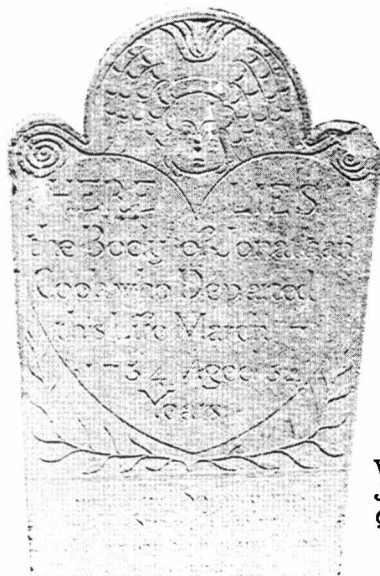 HERE LIES
the Body of Jonathan
who Departed
this Life March
1734 Aged 32
Years